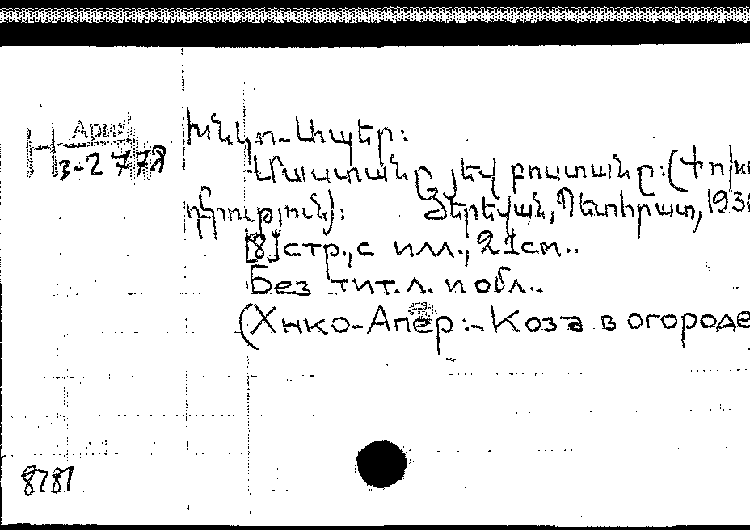 Арм
3-2778
Խնկո-Ապեր:
յեվ բոստանը: (Փոխա
դրություն):
Յերեվան, Պետհրատ, 193
[8] стр., с илл., 21 см..
Без тит. л. и обл..
(Хнко-Апер:- Коза в огороде
8781